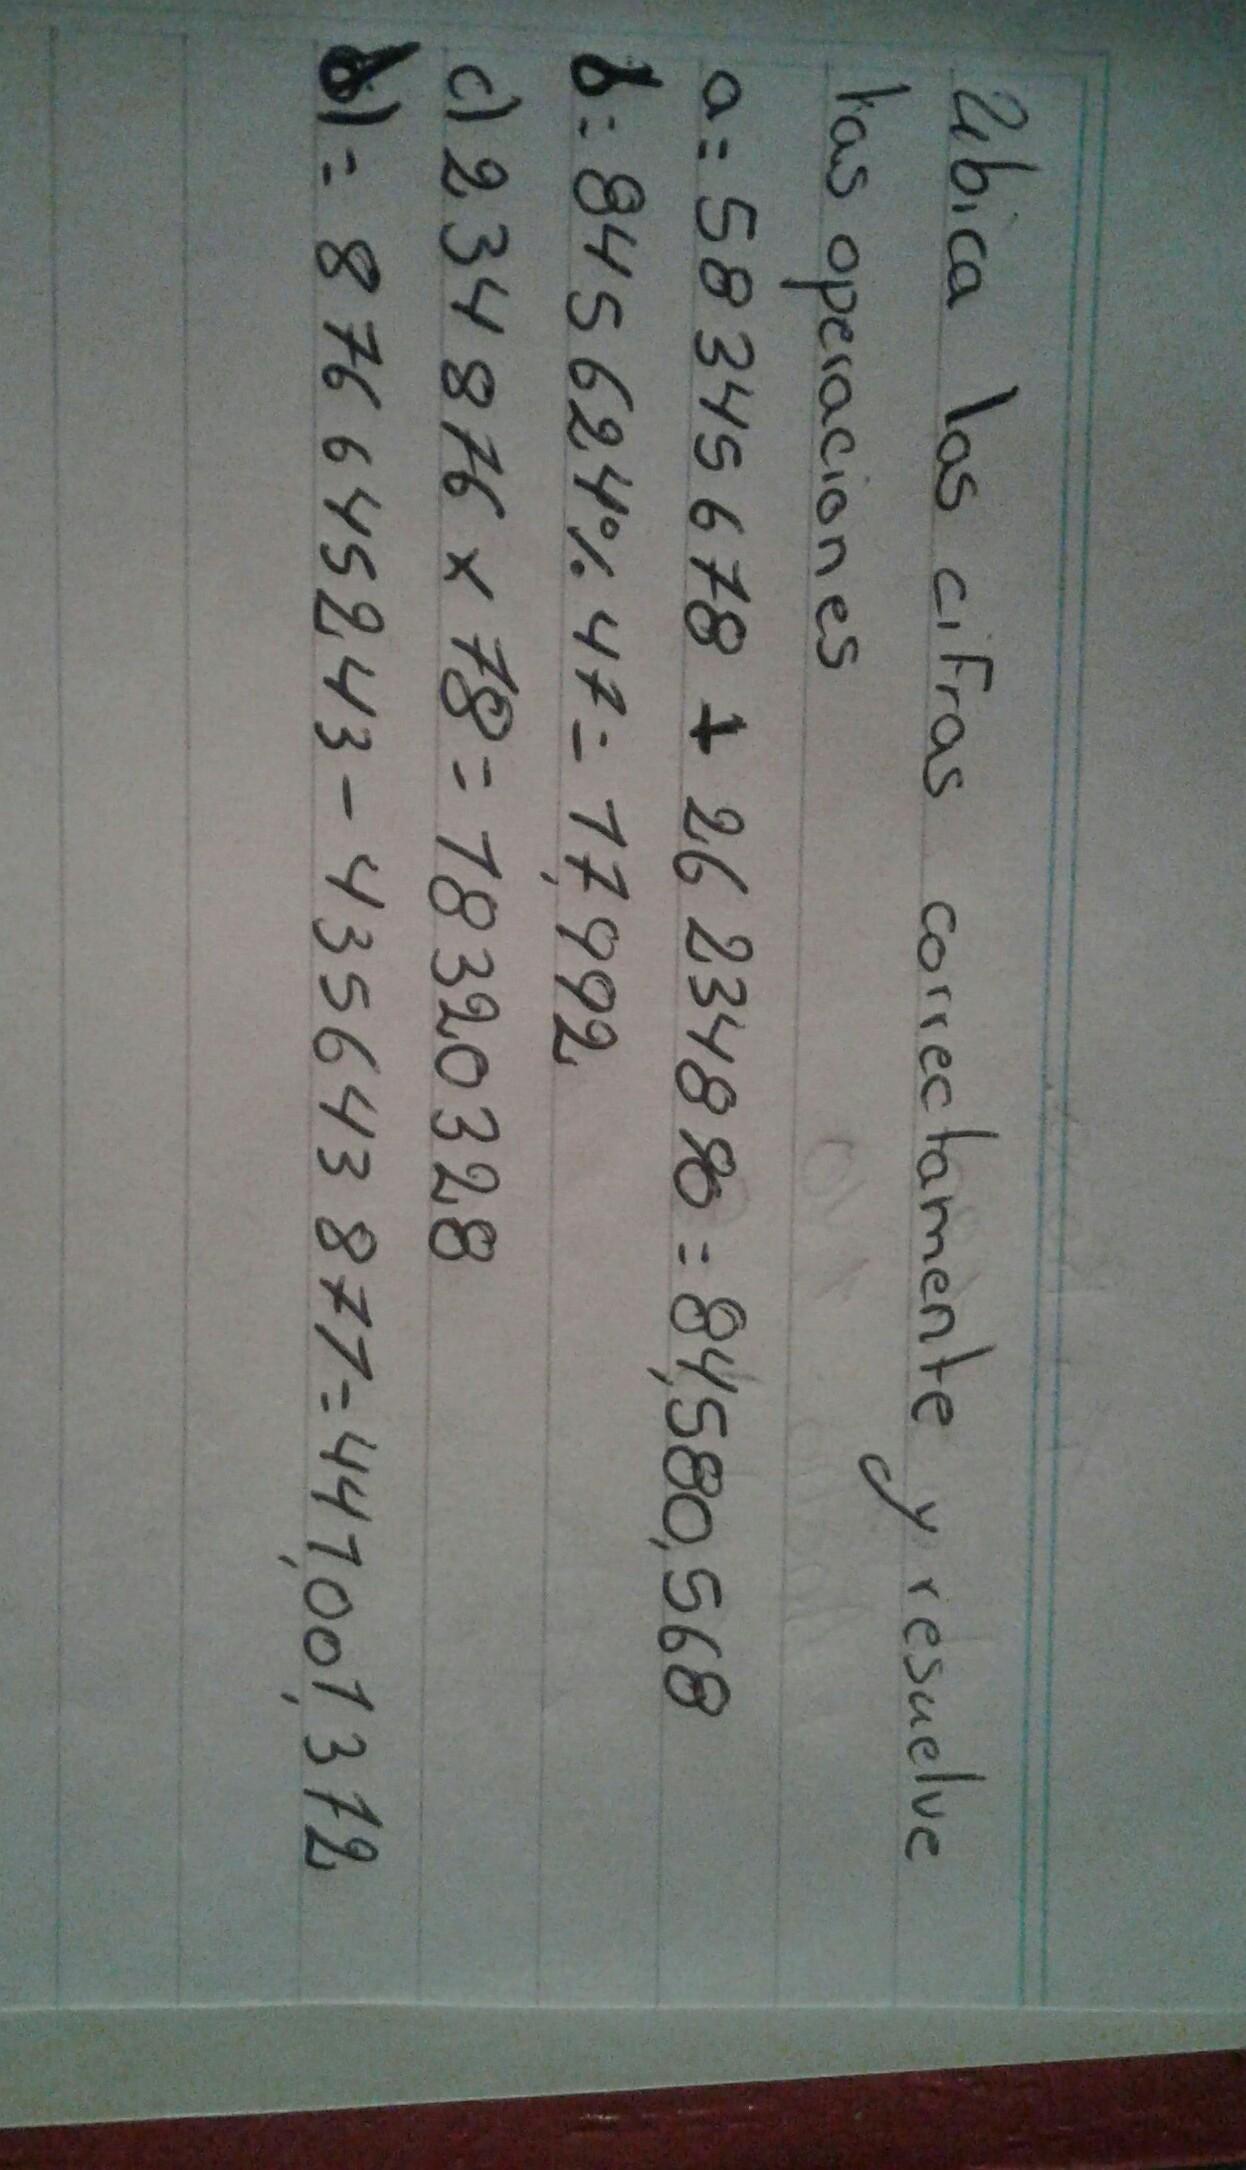 Ubica las cifras correctamente y resuelve
las operaciones
a= 58345678 + 26234890 = 84,580,568
b= 845624% 47= 17,992
c) 234876 x 78= 18320328
d)= 876645243-435643871=441,001,372